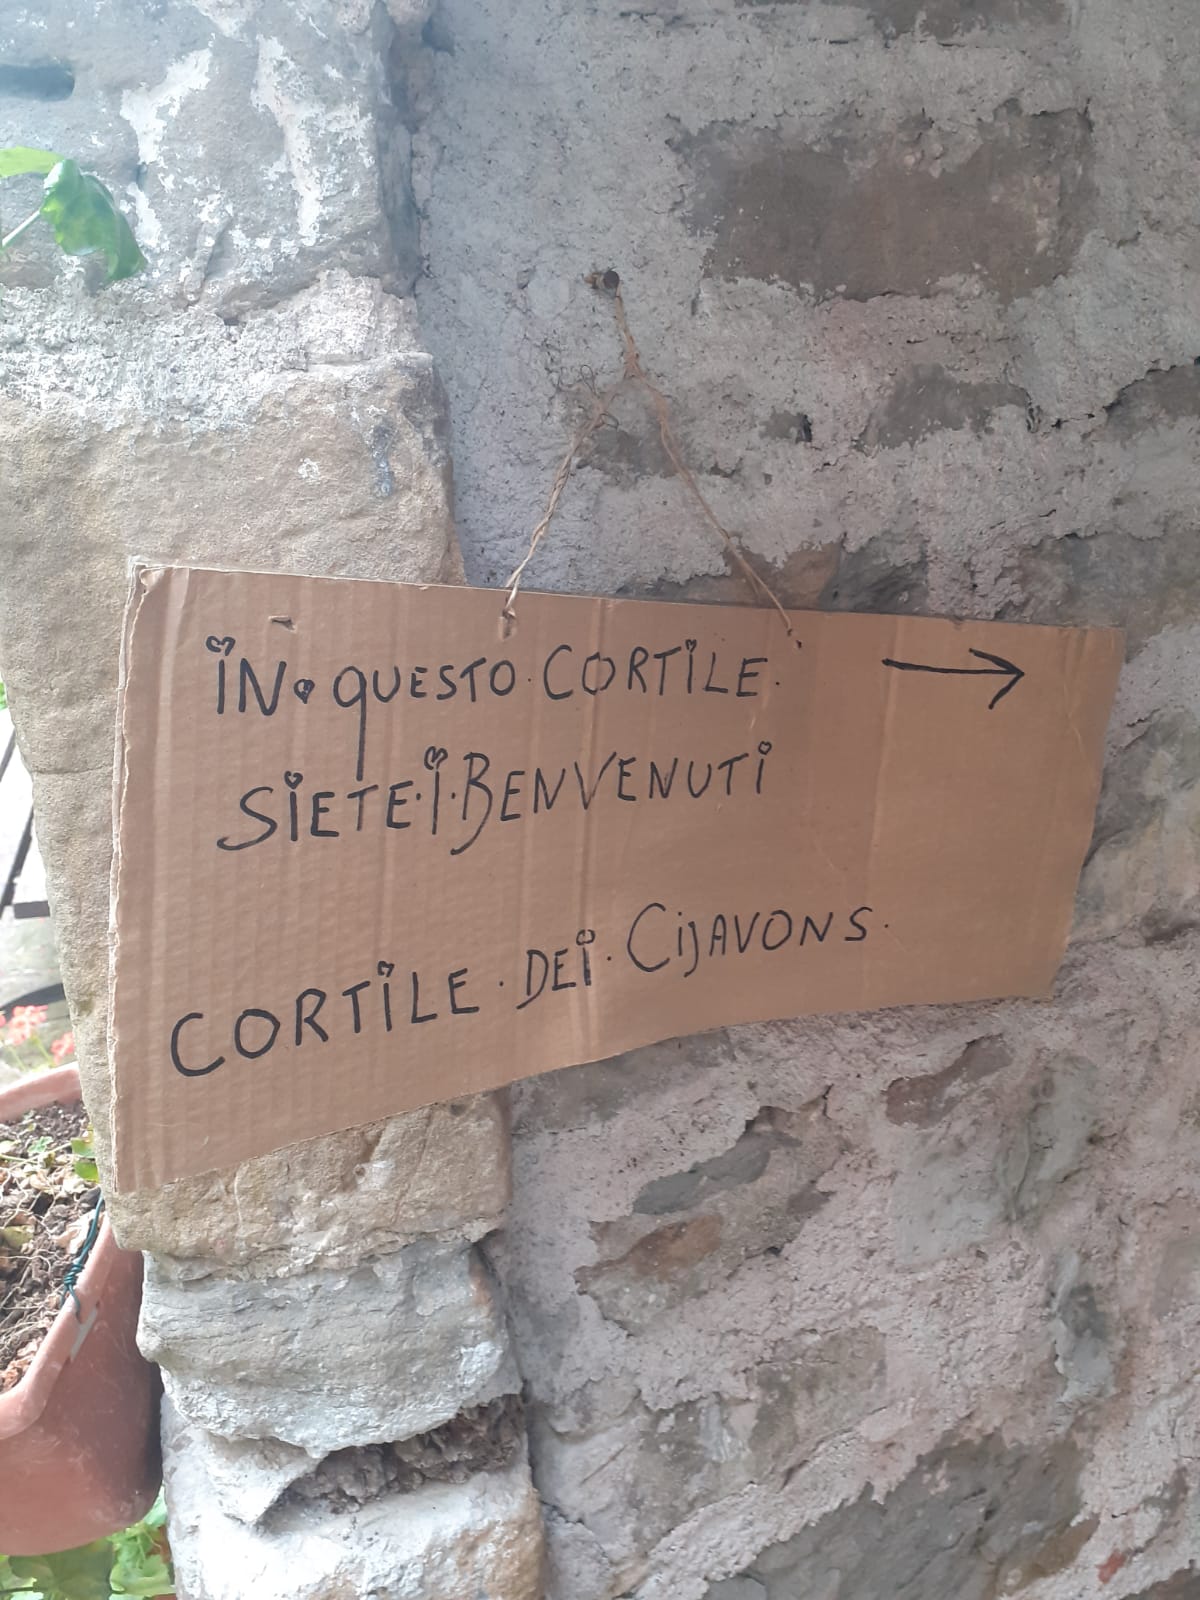 IN • QUESTO · CORTILE · →
SIETE · I · BENVENUTI
CORTILE · DEI · CIJAVONS ·